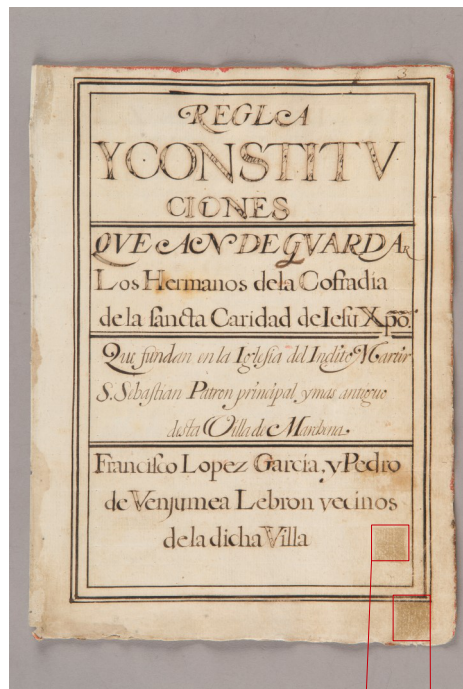 3
REGLA
Y CONSTITV
CIONES
QVE AN DE GVARDAR
Los Hermanos dela Coffradia
de la sancta Caridad de Iesu Xpõ.
Que fundan en la Iglesia del Indito Martir
S. Sebastian Patron principal ymas antiguo
desta Villa de Marchena
Francisco Lopez Garcia, y Pedro
de Venjumea Lebron vecinos
de la dicha Villa